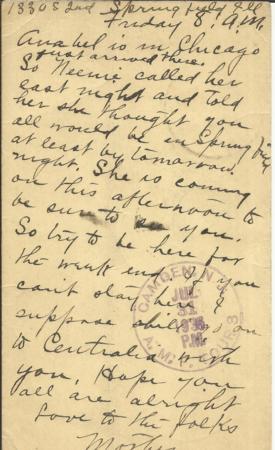 1330 S 2nd Springfield Ill
Friday 8 A.M.
Anabel is in Chicago
Just arrived there.
So Neenie called her
last night and told
her she thought you
all would be in Springfield
at least by tomorrow
night. She is coming
on this afternoon to
be sure to see you.
So try to be here for
the week end if you
can't stay here I
suppose she'll go on
to Centralia with
you. Hope you
all are alright
Love to the folks
Mother
CAMDEN, N.J.
JUL
31
PM